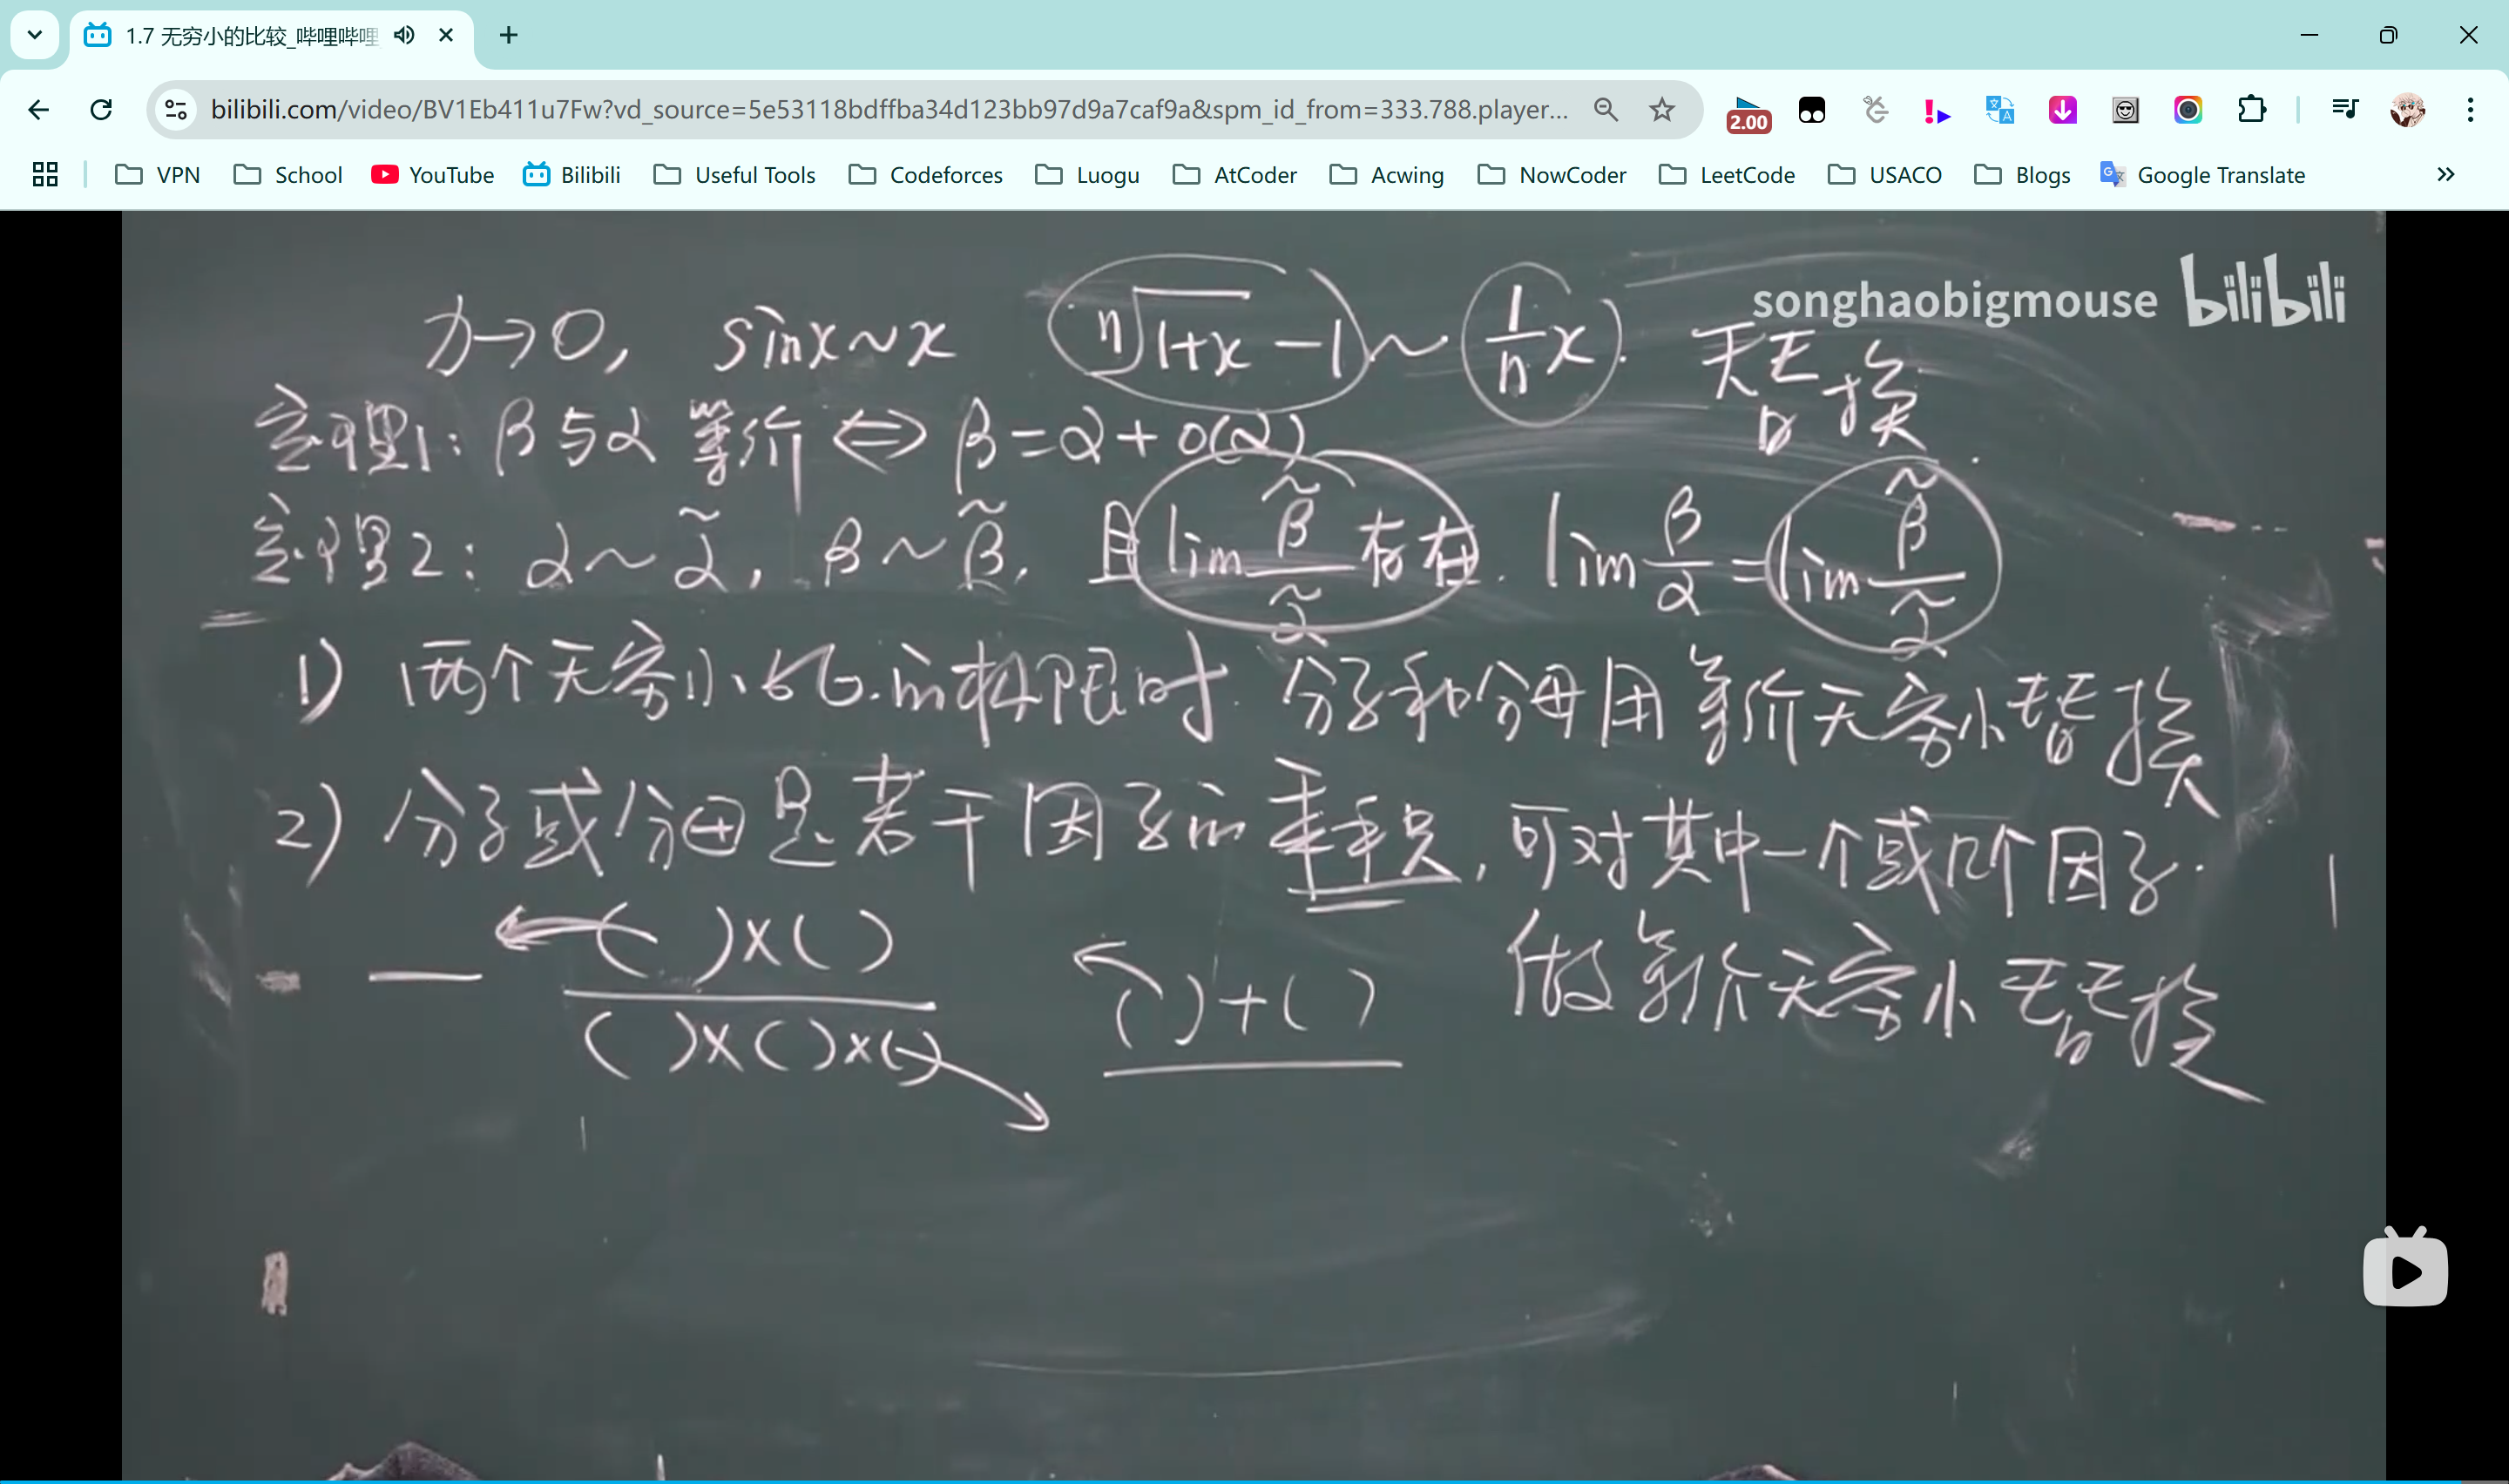 1.7 无穷小的比较_哔哩哔哩
bilibili.com/video/BV1Eb411u7Fw?vd_source=5e53118bdffba34d123bb97d9a7caf9a&spm_id_from=333.788.player...
2.00
VPN School YouTube Bilibili Useful Tools Codeforces Luogu AtCoder Acwing NowCoder LeetCode USACO Blogs Google Translate
songhaobigmouse bilibili
x→0, sinx~x ⁿ√1+x -1 ~ 1/n x. 替换
定理1: β与α 等价 ⇔ β=α+o(α)
定理2: α~α̃, β~β̃, 且lim β̃/α̃ 存在. lim β/α = lim β̃/α̃
1) 两个无穷小比的极限时 分子和分母用等价无穷小替换
2) 分子或分母是若干因子的乘积, 可对其中一个或几个因子.
做等价无穷小替换
( )×( )
( )×( )×( )
( )+( )